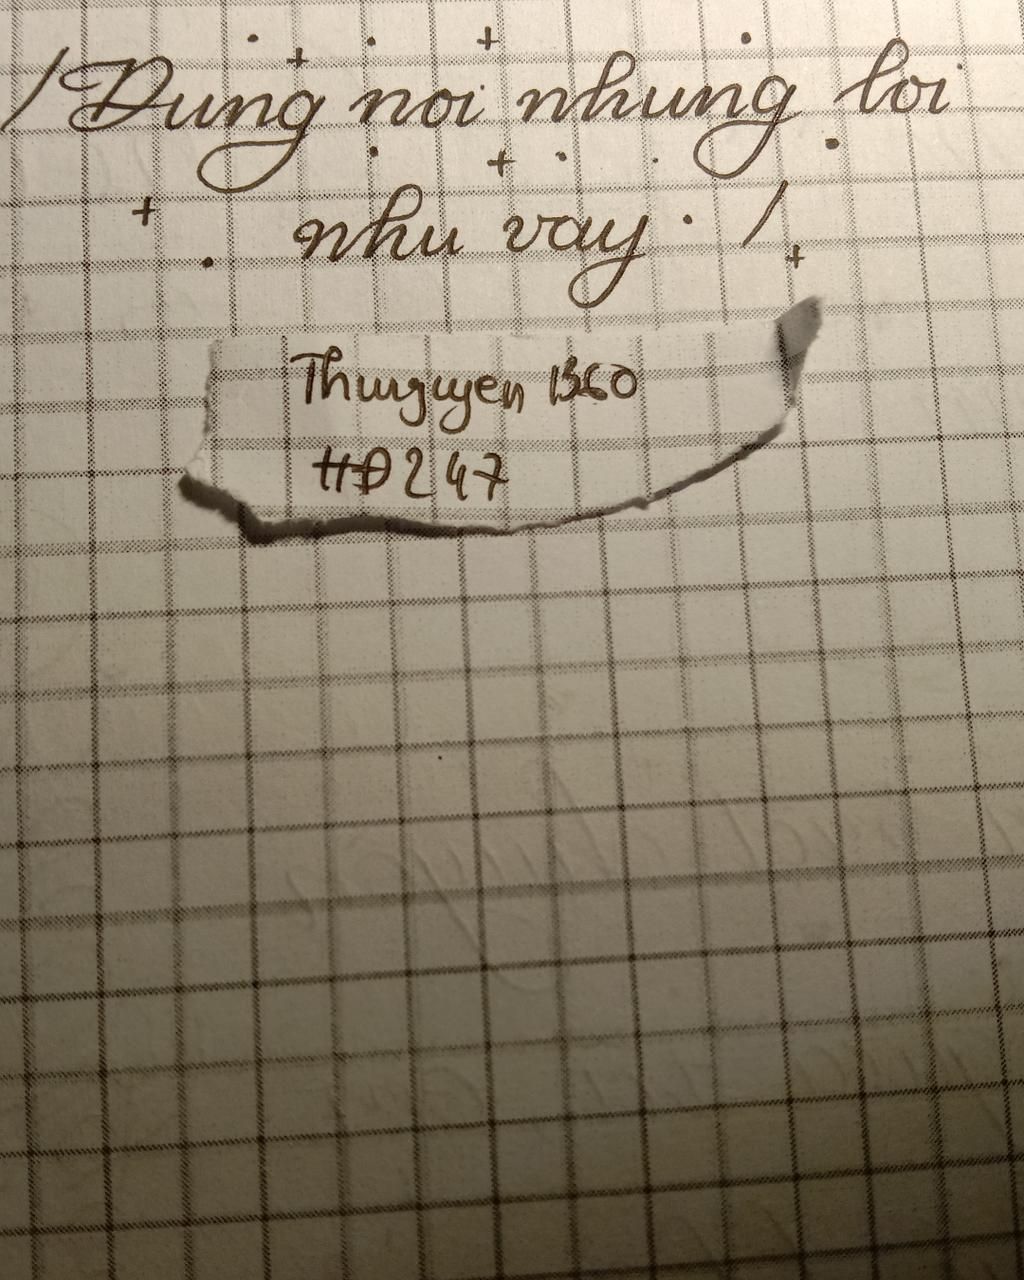 /Dung noi nhung loi
nhu vay. /
Thuyguyen 1360
HD247